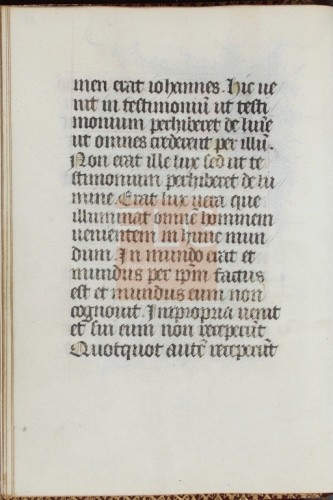 men erat iohannes. Hic ve
nit in testimoniū ut testi
monium perhiberet de lumīe
ut omnes crederent per illū.
Non erat ille lux sed ut te
stimonium perhiberet de lu
mine. Erat lux vera que
illuminat omnē hominem
venientem in hunc mun
dum. In mundo erat et
mundus per ip̄m factus
est et mundus eum non
cognovit. In propria venit
et sui eum non receperūt
Quotquot autē receperūt